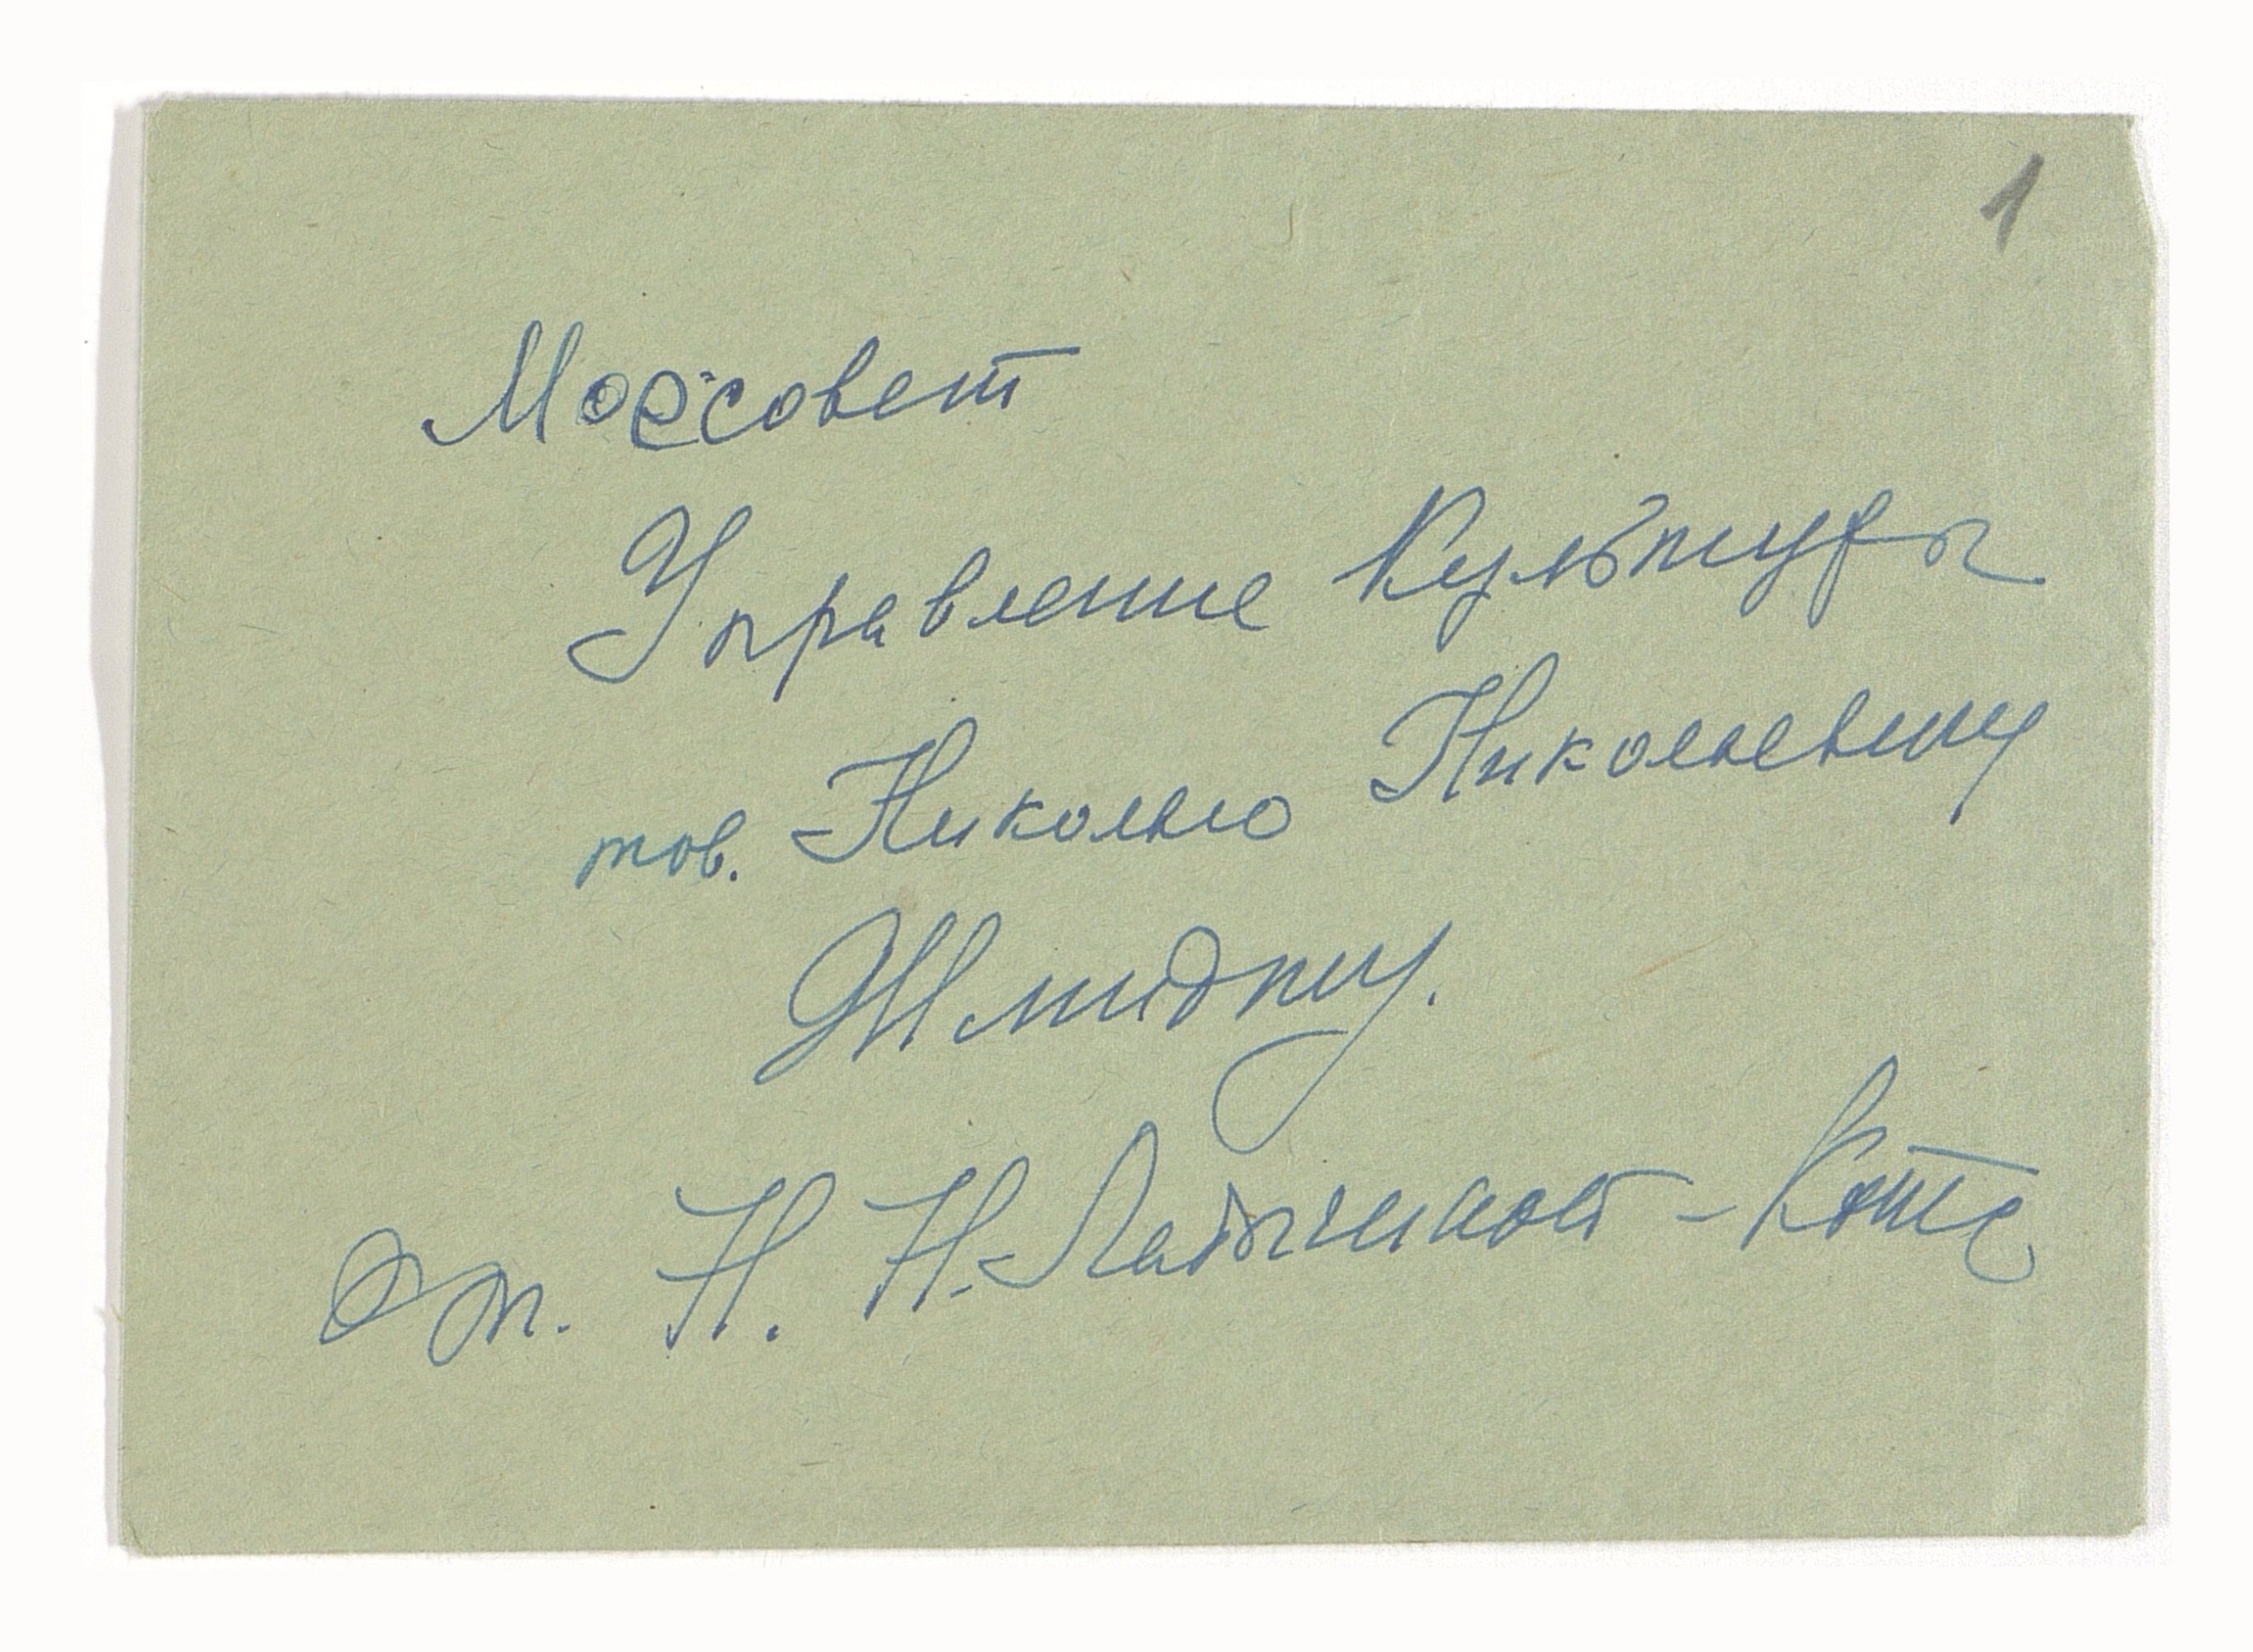 1
Моссовет
Управление Культуры
тов. Николаю Николаевичу
Шмидту.
От. Н. Н. Ладыгиной - Котс